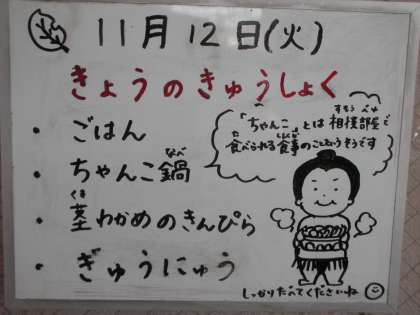 11月12日(火)
きょうのきゅうしょく
・ごはん
・ちゃんこ鍋
なべ
・茎わかめのきんぴら
くき
・ぎゅうにゅう
「ちゃんこ」とは相撲部屋で
すもうべや
食べられる食事のことというそうです
た しょくじ
しっかりたべてくださいね